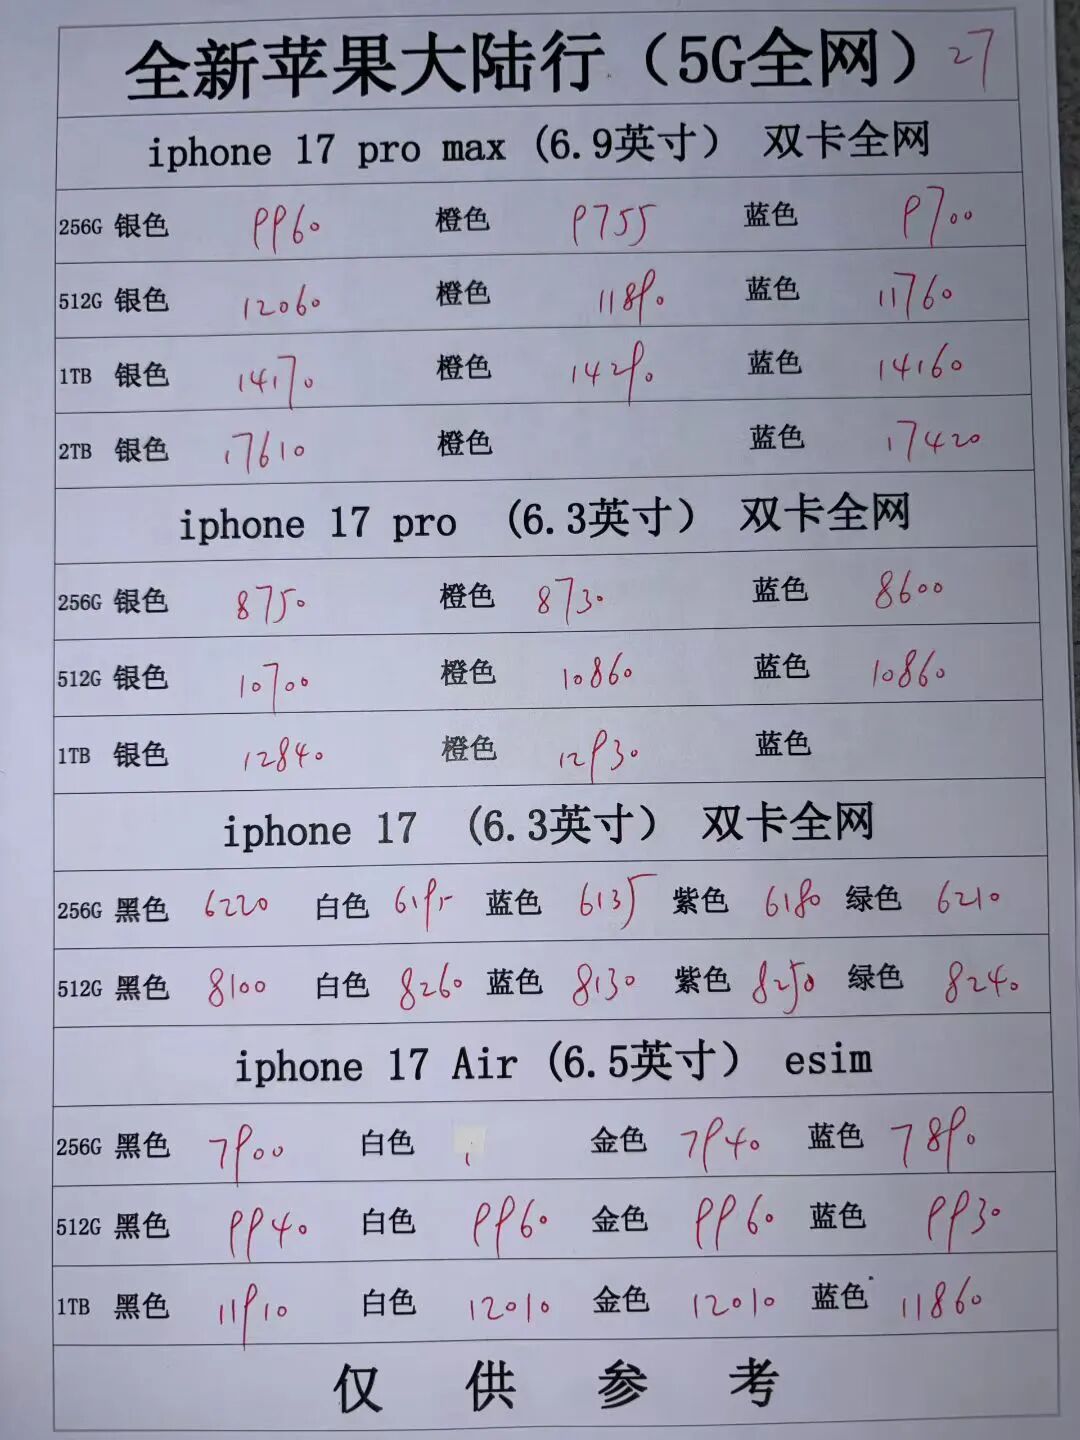 全新苹果大陆行（5G全网） 27
iphone 17 pro max (6.9英寸） 双卡全网
256G 银色 9960 橙色 9755 蓝色 9700
512G 银色 12060 橙色 11890 蓝色 11760
1TB 银色 14170 橙色 14290 蓝色 14160
2TB 银色 17610 橙色 蓝色 17420
iphone 17 pro (6.3英寸） 双卡全网
256G 银色 8750 橙色 8730 蓝色 8600
512G 银色 10700 橙色 10860 蓝色 10860
1TB 银色 12840 橙色 12930 蓝色
iphone 17 (6.3英寸） 双卡全网
256G 黑色 6220 白色 6195 蓝色 6135 紫色 6180 绿色 6210
512G 黑色 8100 白色 8260 蓝色 8130 紫色 8250 绿色 8240
iphone 17 Air (6.5英寸） esim
256G 黑色 7900 白色 金色 7940 蓝色 7890
512G 黑色 9940 白色 9960 金色 9960 蓝色 9930
1TB 黑色 11910 白色 12010 金色 12010 蓝色 11860
仅供参考